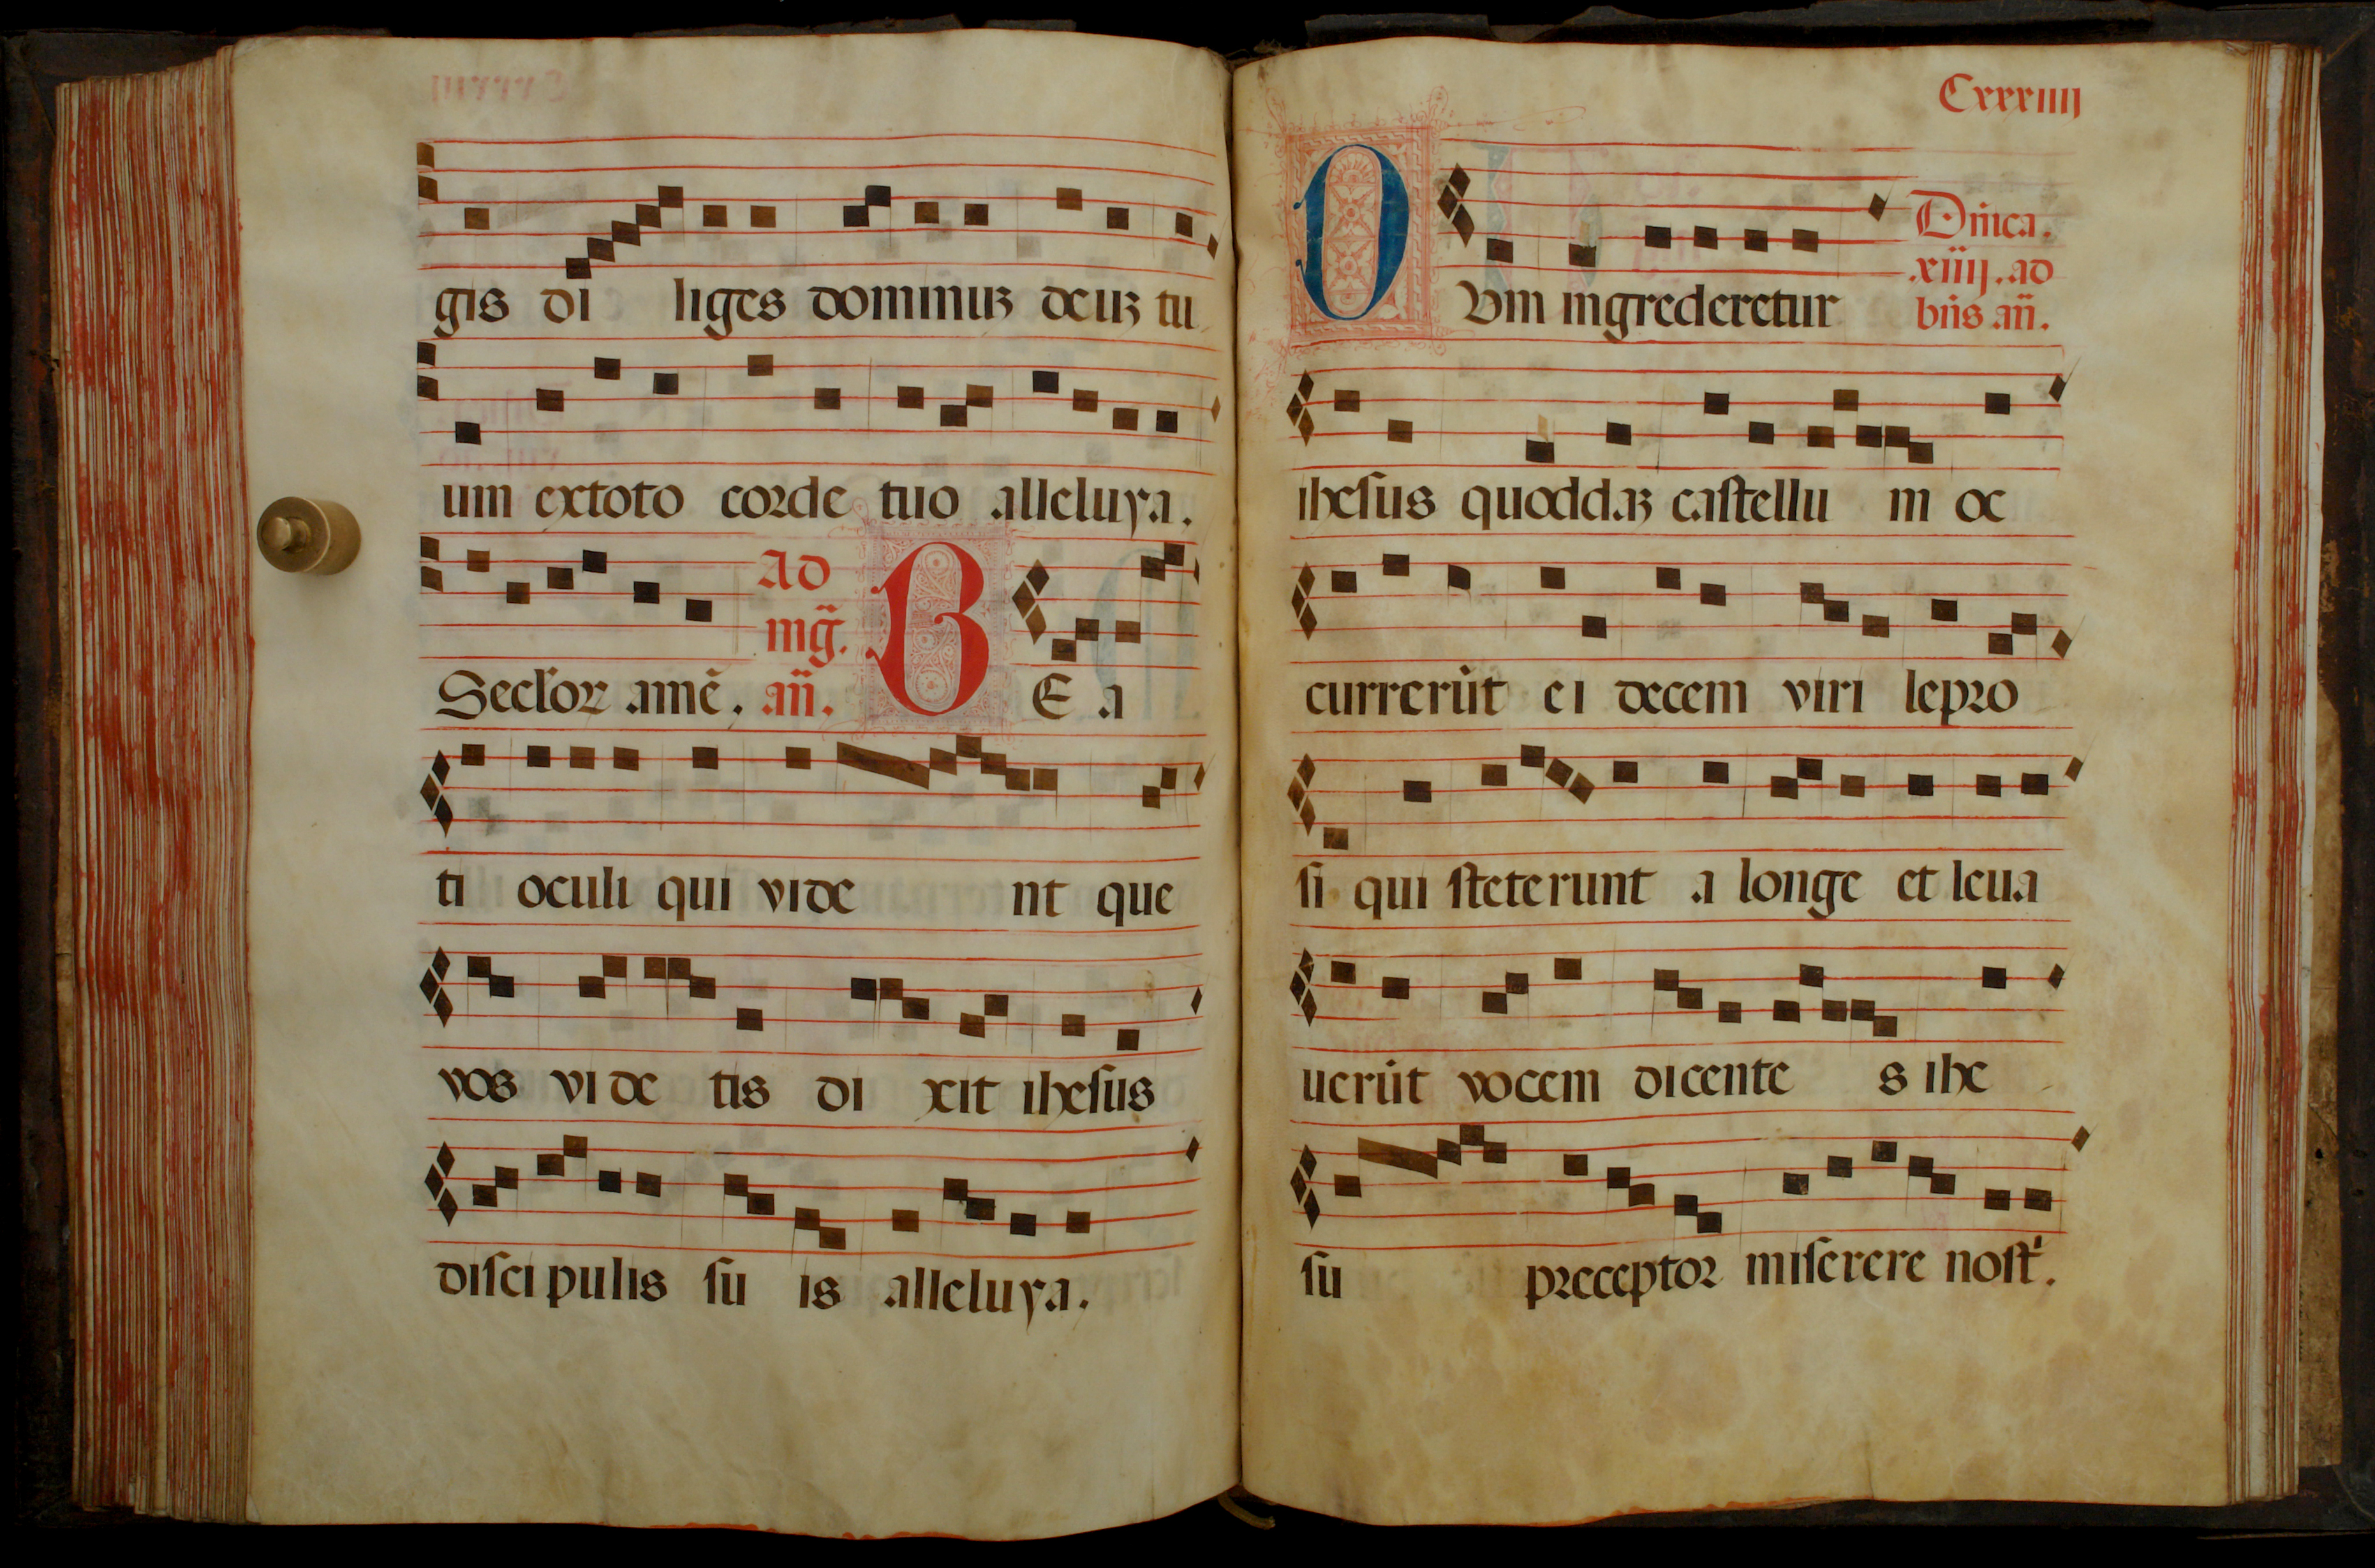 gis di liges dominuʒ deuʒ tu
um extoto corde tuo alleluya.
Ad
mg̃.
Secl'oꝝ amẽ. añ. B E a
ti oculi qui vide nt que
vos vi de tis di xit ihesus
disci pulis su is alleluya.
Cxxxiiij
Dñica.
.xiiij. ad
D Vm ingrederetur bñs añ.
ihesus quoddaʒ castellu m oc
currerũt ei decem viri lepro
si qui steterunt a longe et leua
uerũt vocem dicente s ihe
su preceptor miserere nost'.